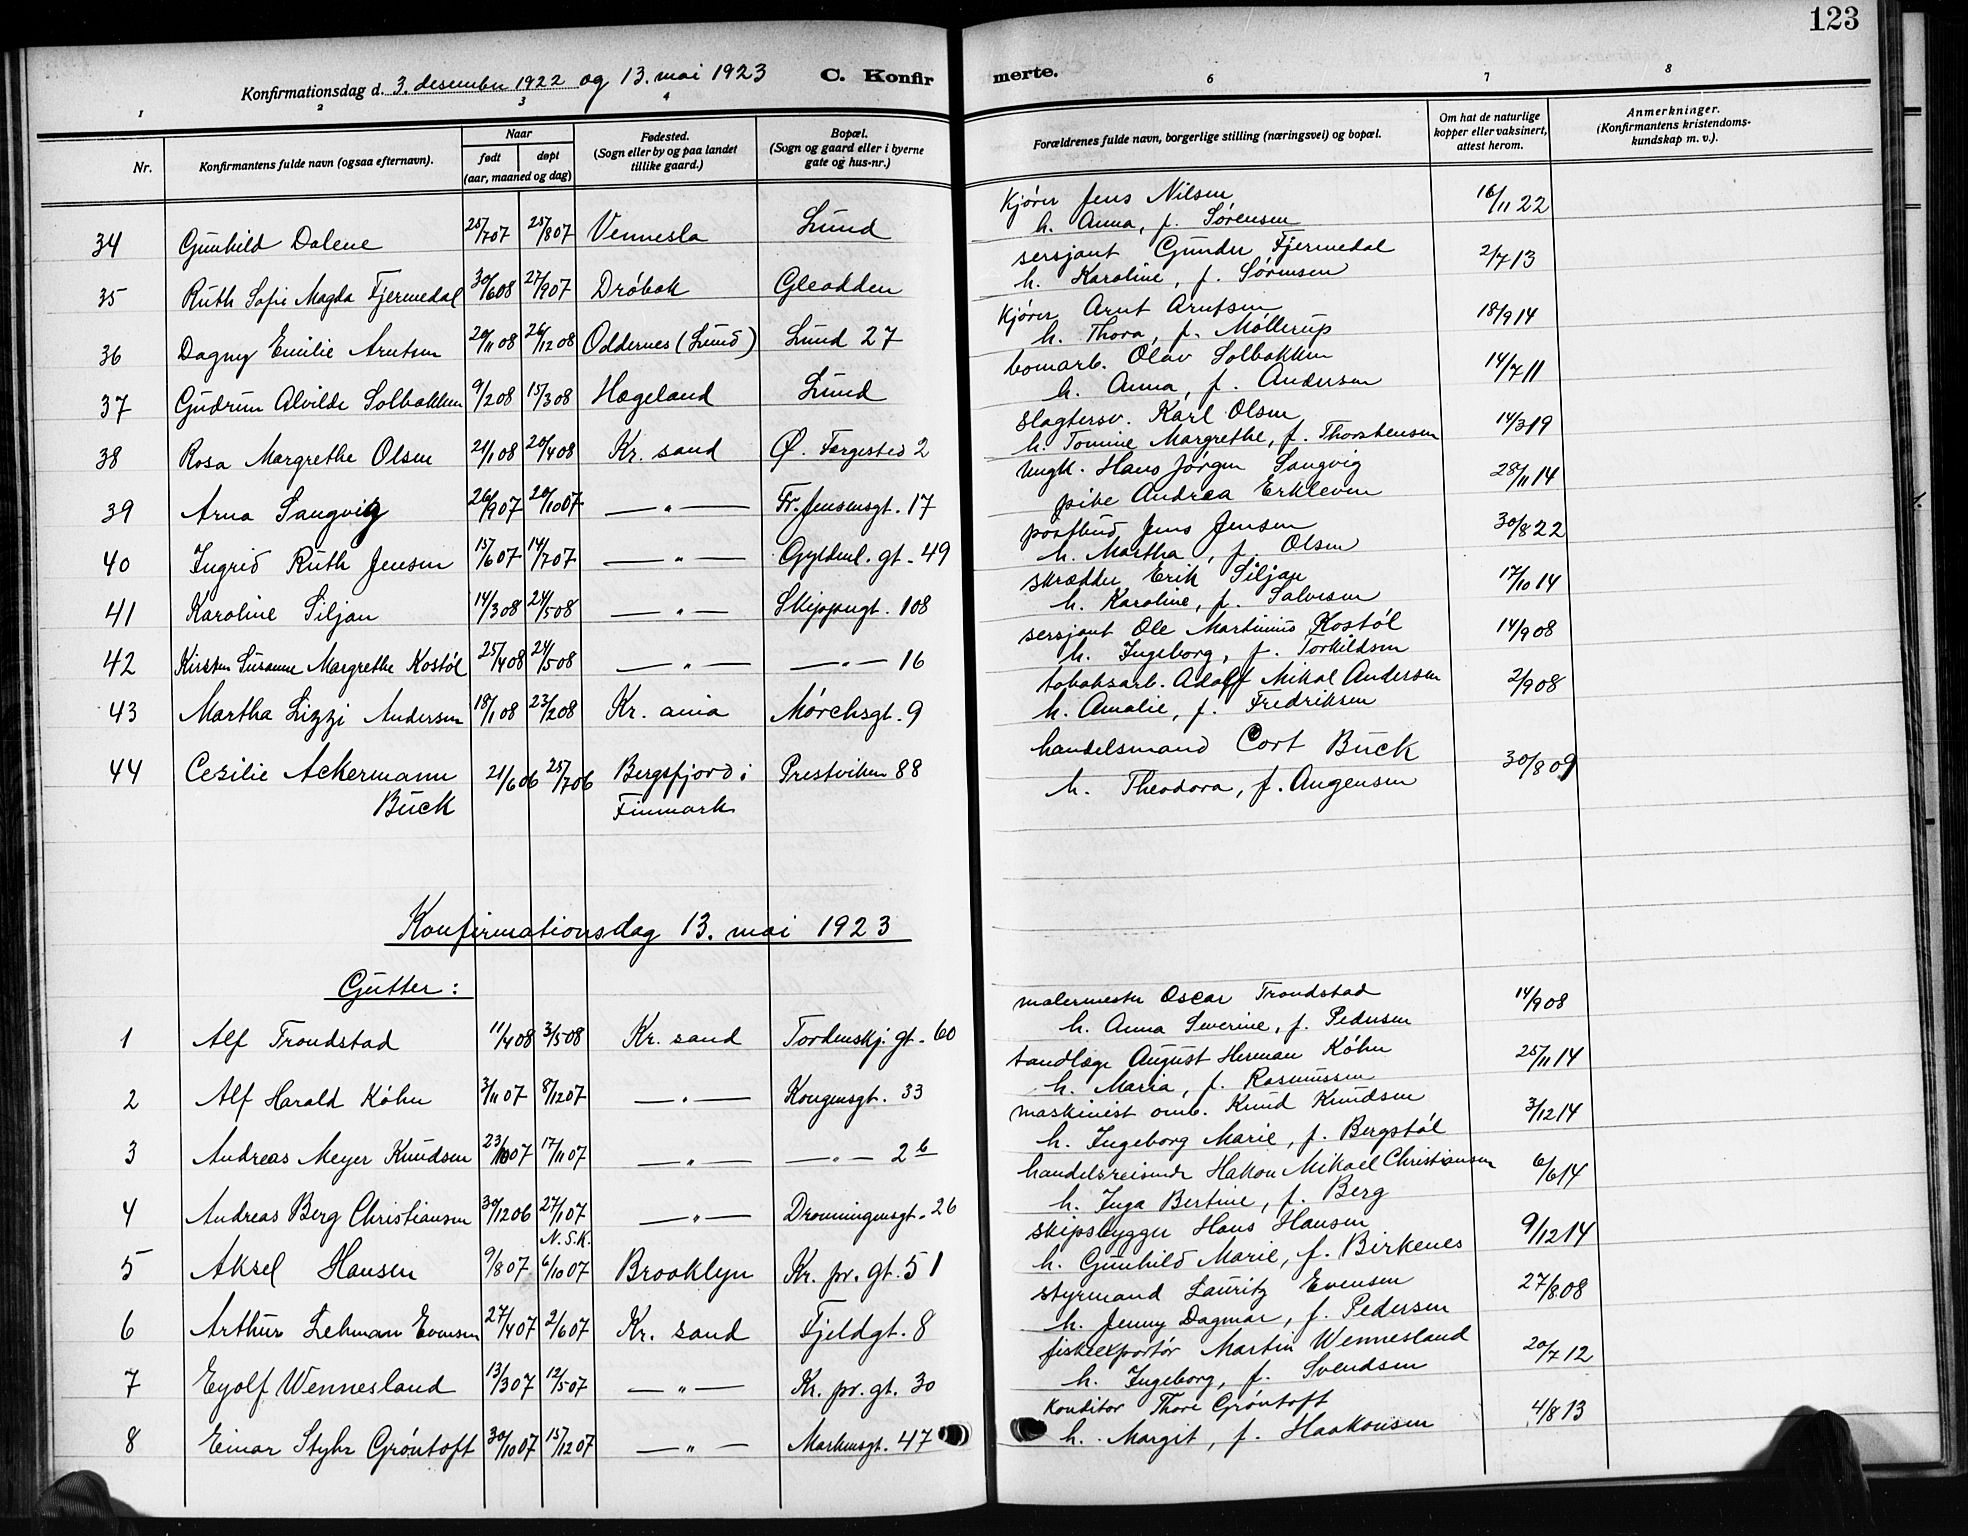 123
Konfirmationsdag d. 3. desember 1922 og 13. mai 1923 C. Konfirmerte.
1 2 3 4 6 7 8
Nr. Konfirmantens fulde navn (ogsaa efternavn). Naar født døpt (aar, maaned og dag) Fødested. (Sogn eller by og paa landet tillike gaard.) Bopæl. (Sogn og gaard eller i byerne gate og hus-nr.) Forældrenes fulde navn, borgerlige stilling (næringsvei) og bopæl. Om hat de naturlige kopper eller vaksinert, attest herom. Anmerkninger. (Konfirmantens kristendoms-kundskap m. v.).
34 Gunhild Dalene 25/7 07 25/8 07 Vennesla Lund Kjører Jens Nilsen 16/11 22
h. Anna, f. Sørensen
35 Ruth Sofie Magda Fjermedal 30/6 08 27/9 07 Drøbak Gleodden sersjant Gunder Fjermedal 2/7 13
h. Karoline, f. Sørensen
36 Dagny Emilie Arntsen 20/11 08 26/12 08 Oddernes (Lund) Lund 27 Kjører Arnt Arntsen 18/9 14
h. Thora, f. Møllerup
37 Gudrun Alvilde Solbakken 9/2 08 15/3 08 Hægeland Lund bomarb. Olav Solbakken 14/7 11
h. Anna, f. Andersen
38 Rosa Margrethe Olsen 21/1 08 20/4 08 Kr. sand Ø. Færgested 2 slagtersv. Karl Olsen 14/3 19
h. Tomine Margrethe, f. Thorstensen
39 Arna Sangvig 26/9 07 20/10 07 — " — Fr. Jensensgt. 17 Ungk. Hans Jørgen Sangvig 28/11 14
pike Andrea Erkleven
40 Ingrid Ruth Jensen 15/6 07 14/7 07 — " — Gyldenl. gt. 49 postbud Jens Jensen 30/8 22
h. Martha, f. Olsen
41 Karoline Siljan 14/3 08 24/5 08 — " — Skippergt. 108 skrædder Erik Siljan 17/10 14
h. Karoline, f. Salvesen
42 Kirsten Susanne Margrethe Kostøl 25/4 08 24/5 08 — " — — " — 16 sersjant Ole Martinius Kostøl 14/9 08
h. Ingeborg, f. Torkildsen
43 Martha Lizzi Andersen 18/1 08 23/2 08 Kr. ania Mørchsgt. 9 tobaksarb. Adolf Mikal Andersen 2/9 08
h. Amalie, f. Fredriksen
44 Cesilie Ackermann 21/6 06 25/7 06 Bergsfjord i Prestviken 88 handelsmand Cort Buck 30/8 09
Buck Finmark h. Theodora, f. Angensen
Konfirmationsdag 13. mai 1923
Gutter:
1 Alf Trondstad 11/4 08 3/5 08 Kr. sand Tordenskj. gt. 60 malermester Oscar Trondstad 14/9 08
h. Anna Severine, f. Pedersen
2 Alf Harald Køhn 3/11 07 8/12 07 — " — Kongensgt. 33 tandlæge August Herman Køhn 25/11 14
h. Maria, f. Rasmussen
3 Andreas Meyer Knudsen 23/10 07 17/11 07 — " — — " — 2 b maskinist omb. Knud Knudsen 3/12 14
h. Ingeborg Marie, f. Bergstøl
4 Andreas Berg Christiansen 30/12 06 27/1 07 — " — Dronningensgt. 26 handelsreisende Hakon Mikael Christiansen 6/6 14
h. Inga Bertine, f. Berg
N. S. K.
5 Aksel Hansen 9/8 07 6/10 07 Brooklyn Kr. pr. gt. 51 skipsbygger Hans Hansen 9/12 14
h. Gunhild Marie, f. Birkenes
6 Arthur Lehman Evensen 27/4 07 2/6 07 Kr. sand Fjeldgt. 8 styrmand Lauritz Evensen 27/8 08
h. Jenny Dagmar, f. Pedersen
7 Eyolf Wennesland 13/3 07 12/5 07 — " — Kr. pr. gt. 30 fiskeexportør Martin Wennesland 20/7 12
h. Ingeborg, f. Svendsen
8 Einar Styhr Grøntoft 30/10 07 15/12 07 — " — Markensgt. 47 Konditor Thore Grøntoft 4/8 13
h. Margit, f. Haakonsen